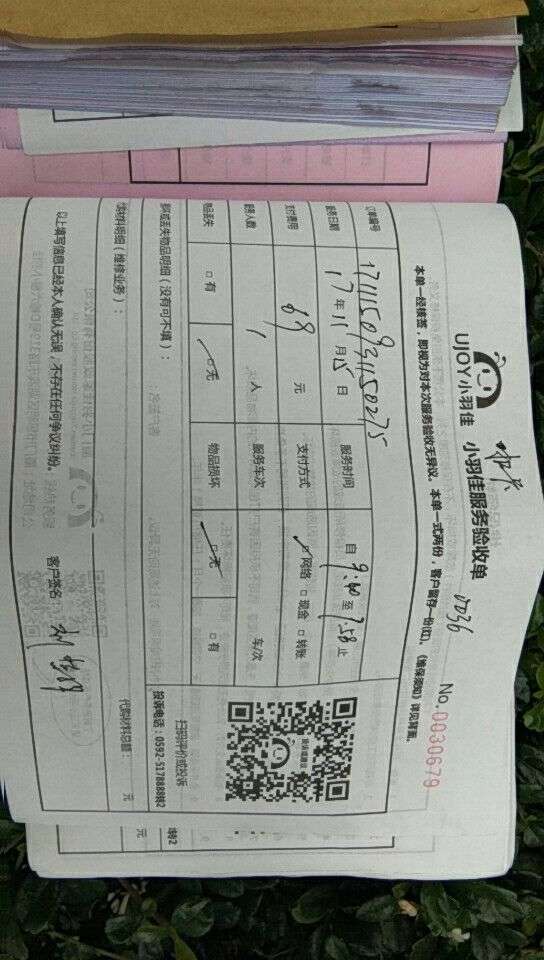 UJOY小羽佳 小羽佳服务验收单
0036
No.0030679
本单一经核签，即视为对本次服务验收无异议。本单一式两份，客户留存一份(红)。《维保须知》详见背面。
订单编号 1711150931150275 服务时间 自 9:40 至 9:58 止
服务日期 17年11月15日
支付费用 69 元 支付方式 ☑网络 □现金 □转账
服务人数 1 人 服务车次 车/次
物品丢失 □有 ☑无 物品损坏 ☑无 □有
损坏或丢失物品明细（没有可不填）：
扫码评价或投诉
投诉电话：0592-5178888转2
代购材料明细（维修业务）：
代购材料总额： 元
以上填写信息已经本人确认无误，不存在任何争议纠纷。 客户签名：
转2
元